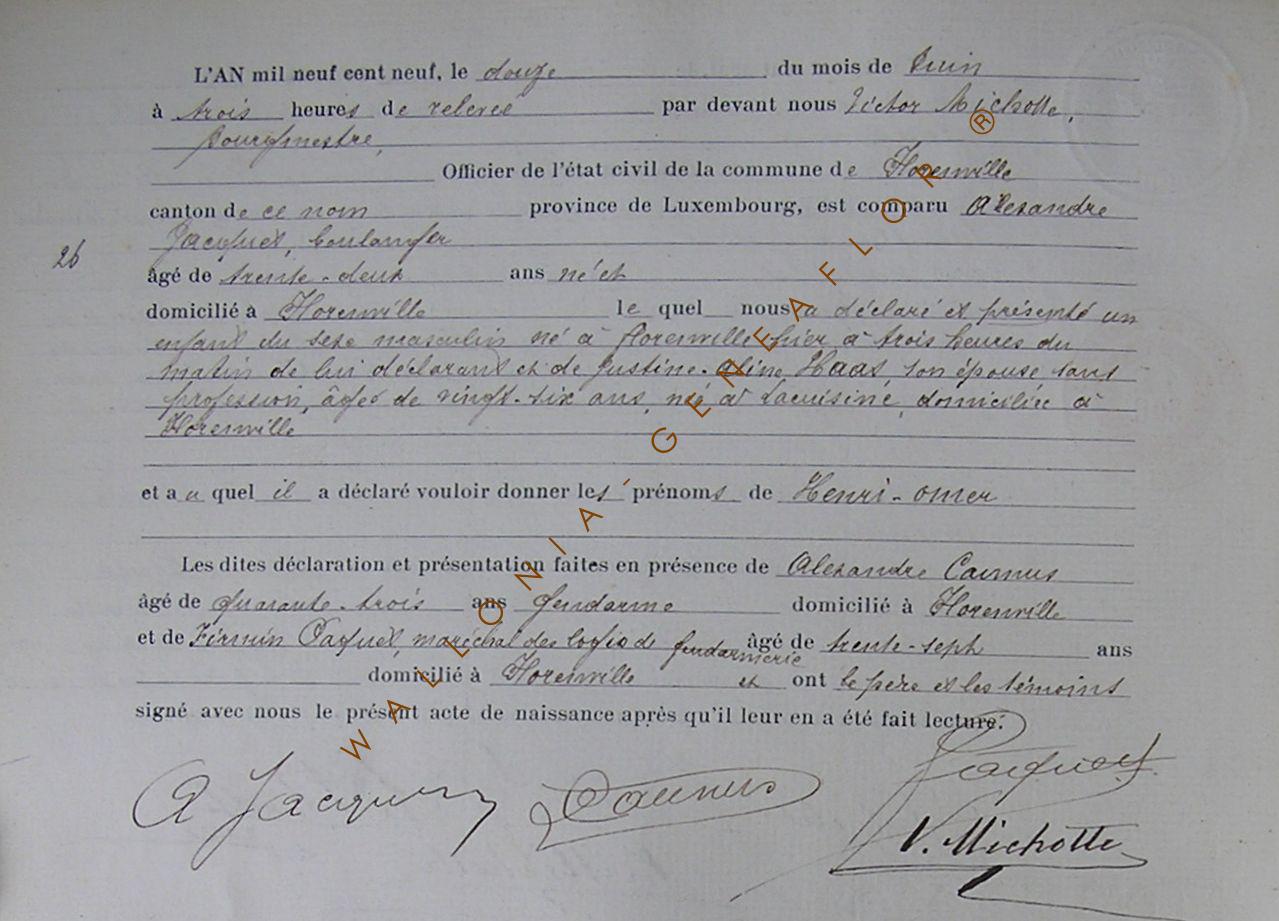 L'AN mil neuf cent neuf, le douze du mois de Juin
à trois heures de relevée par devant nous Victor Michotte,
bourgmestre,
Officier de l'état civil de la commune de Florenville
canton de ce nom province de Luxembourg, est comparu Alexandre
Jacquet, boulanger
26
âgé de trente-deux ans né et
domicilié à Florenville le quel nous a déclaré et présenté un
enfant du sexe masculin né à florenville hier à trois heures du
matin de lui déclarant et de Justine-Aline Haas, son épouse sans
profession, âgée de vingt-six ans, née à Lacuisine, domiciliée à
Florenville
et a u quel il a déclaré vouloir donner les prénoms de Henri-omer
Les dites déclaration et présentation faites en présence de Alexandre Camus
âgé de quarante-trois ans gendarme domicilié à Florenville
et de Firmin Paquet, maréchal des logis de gendarmerie âgé de trente-sept ans
domicilié à Florenville et ont le père et les témoins
signé avec nous le présent acte de naissance après qu'il leur en a été fait lecture.
A Jacquet Camus Paquet
V. Michotte
WALLONIA-GENEAFLOR®